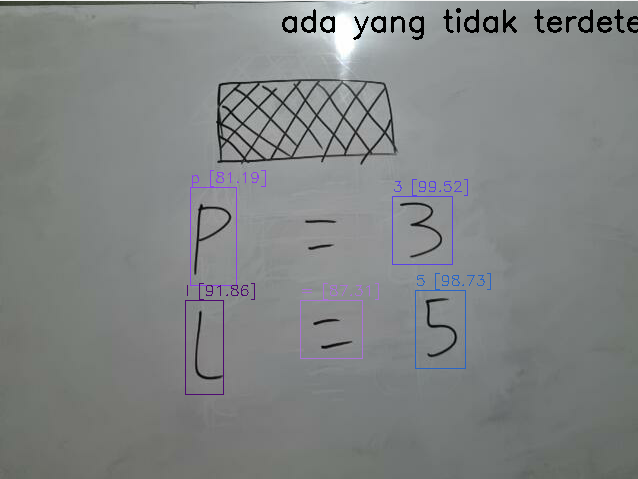 ada yang tidak terdete
p [81.19]
3 [99.52]
P = 3
l [91.86]
5 [98.73]
L = 5